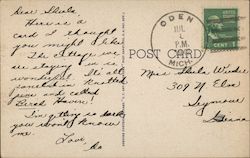 Dear Sheila,
Here is a
card I thought
you might like.
The cottage we
are staying in is
wonderful. It's all
paneled in knotted
pine and called
Birch Haven!
I'm getting so dark
you won't know
me.
Love
ODEN
JUL
P.M.
MICH.
POST CARD
1
Miss Sheila
309 N Elm
Seymour